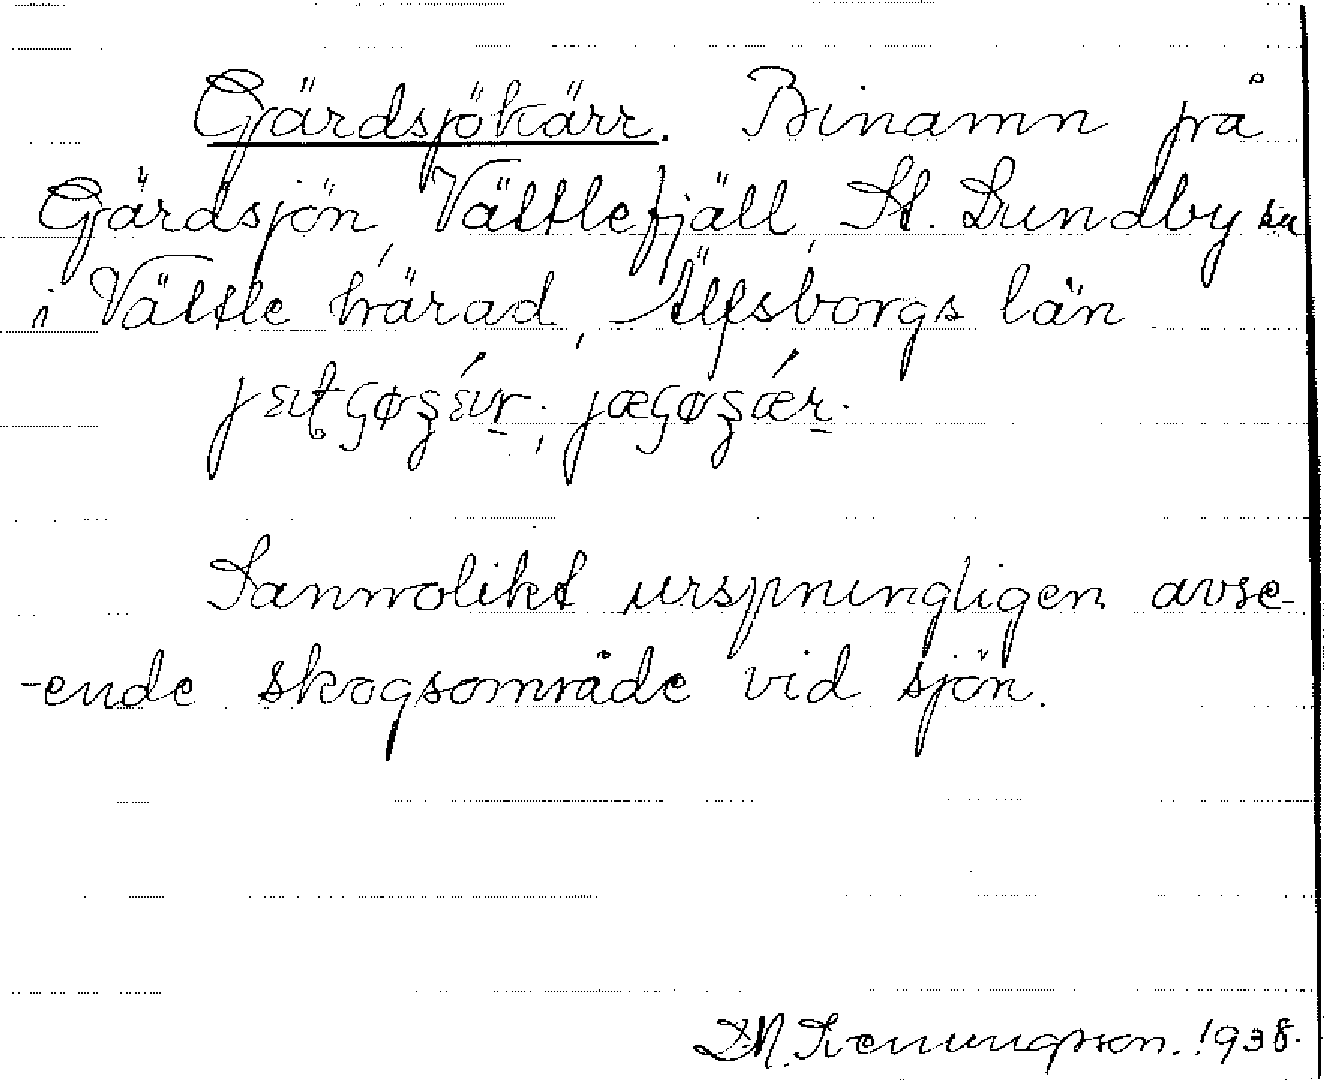 Gärdsjökärr. Binamn på
Gärdsjön, Vättlefjäll, St. Lundby sn
i Vättle härad, Älfsborgs län
Sannolikt ursprungligen avse-
-ende skogsområde vid sjön.
1938.